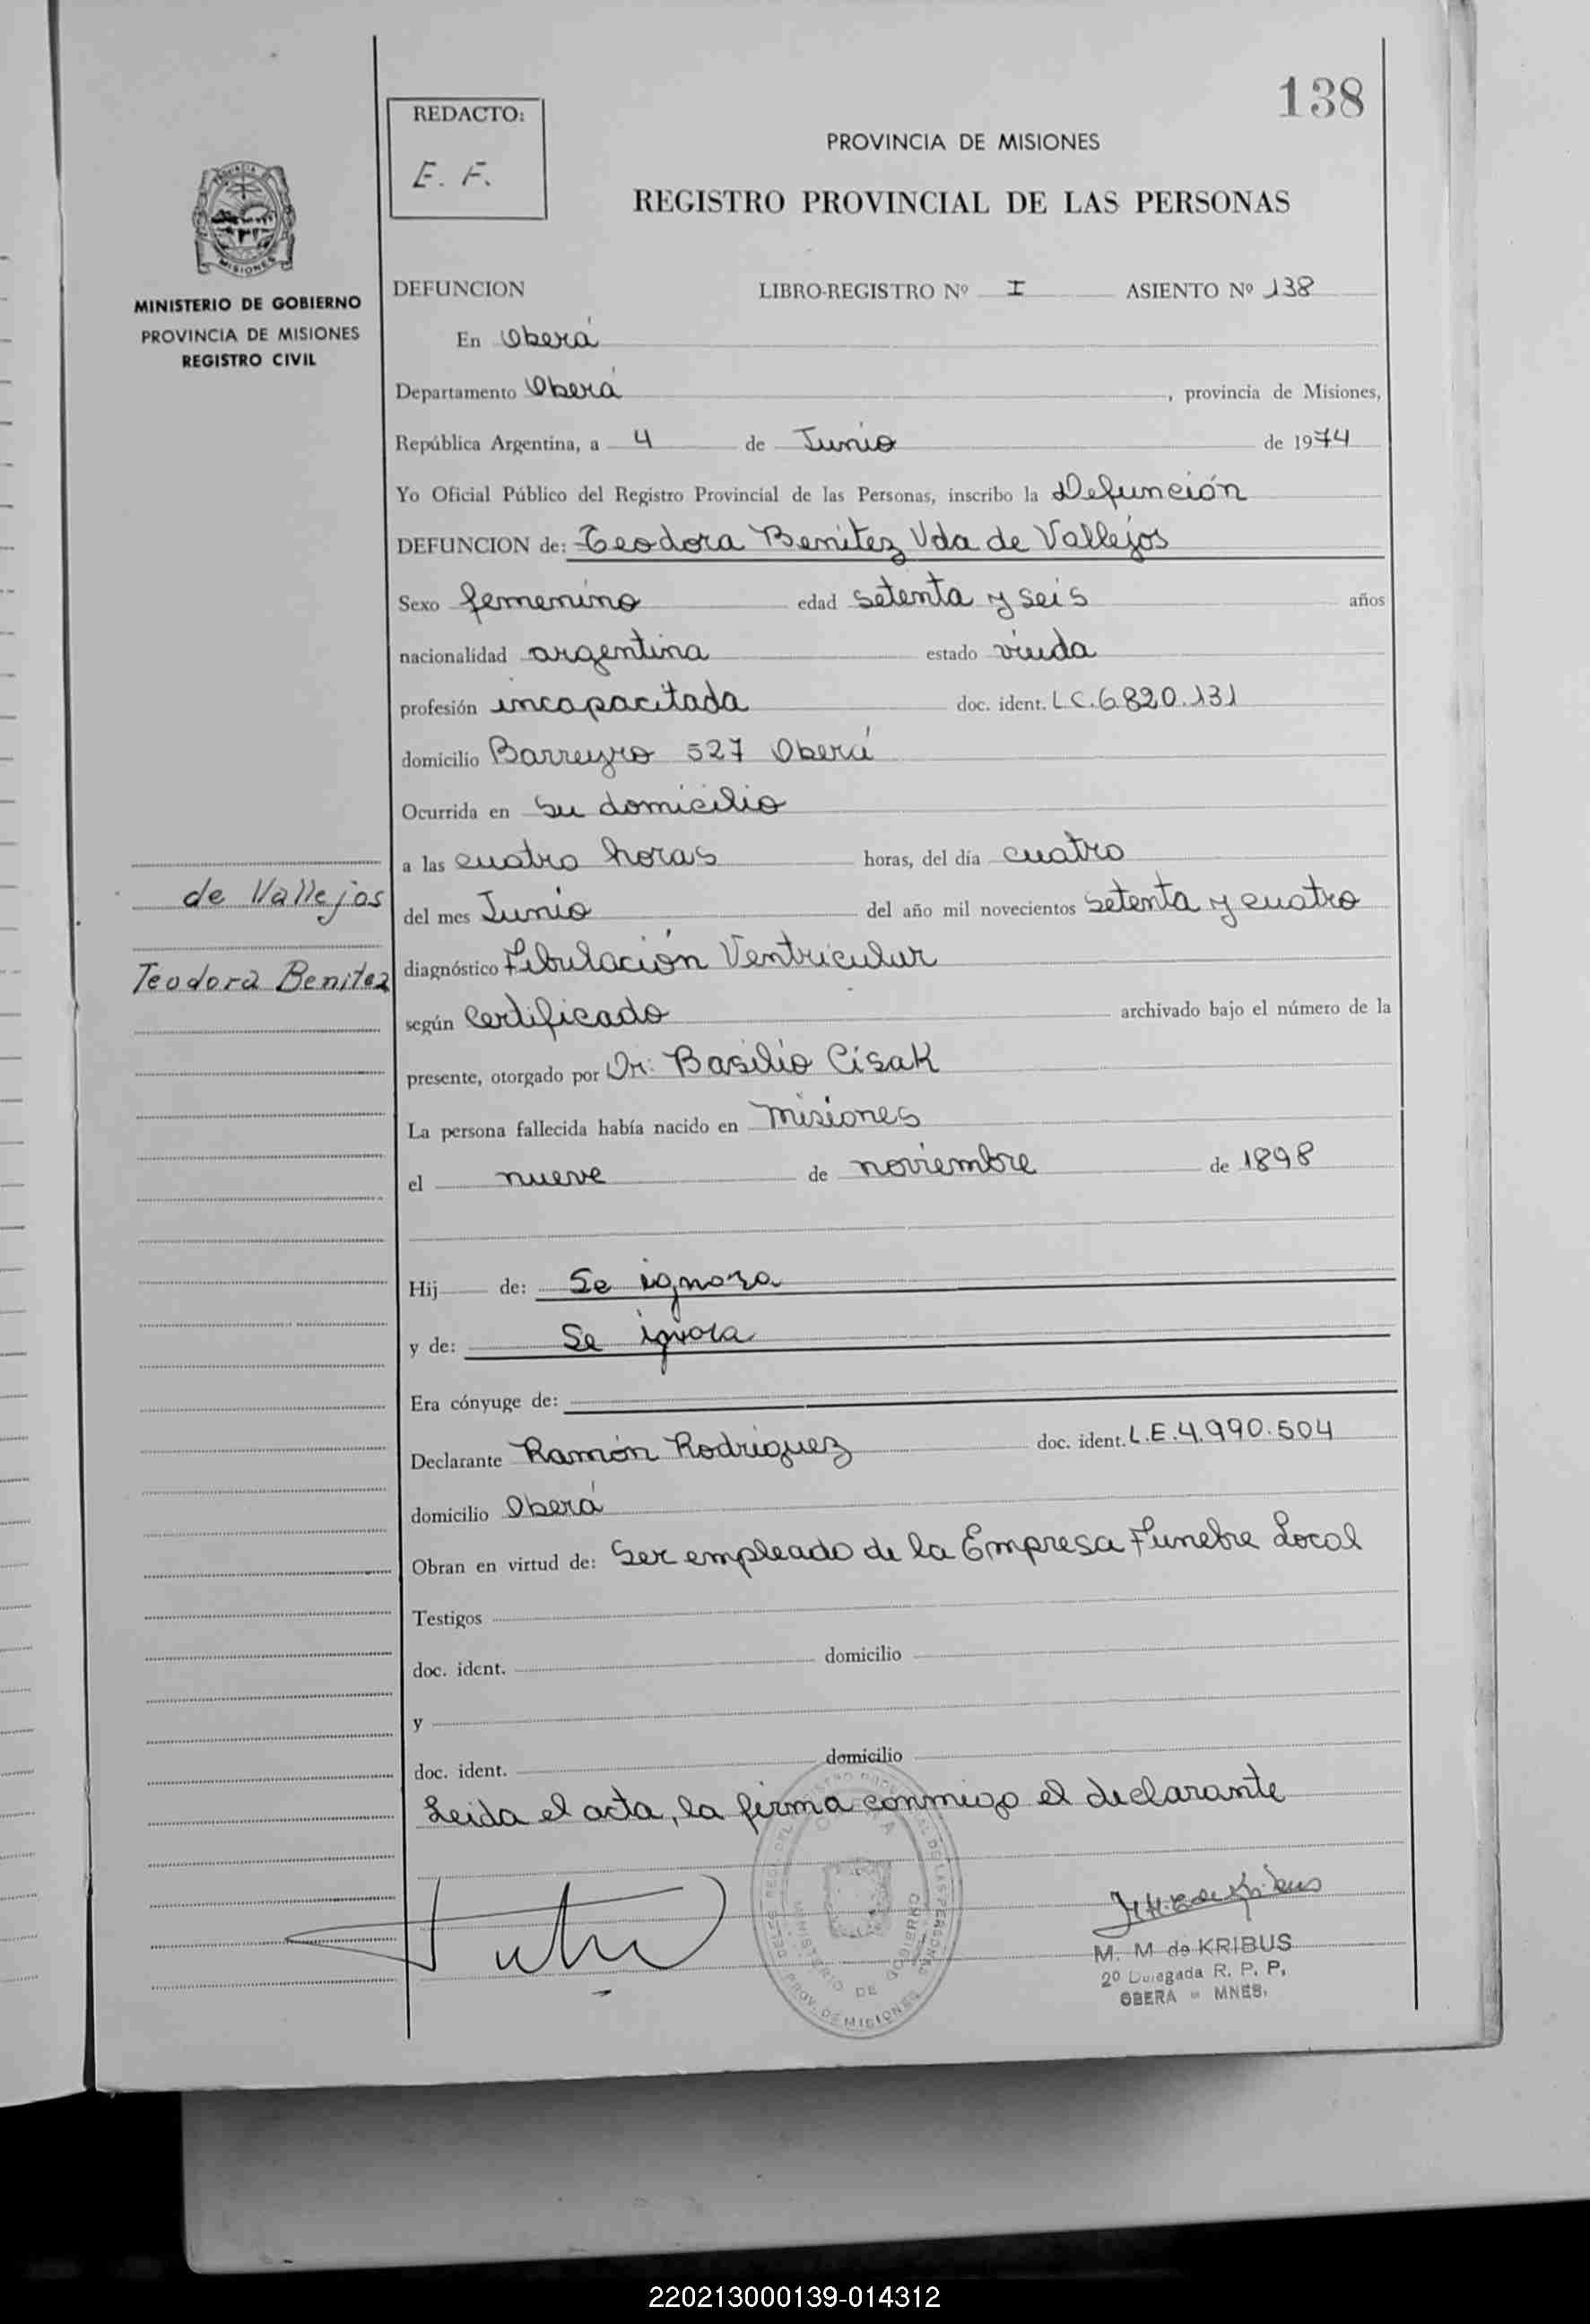 138
REDACTO:
E. F.
PROVINCIA DE MISIONES
REGISTRO PROVINCIAL DE LAS PERSONAS
MISIONES
MINISTERIO DE GOBIERNO
PROVINCIA DE MISIONES
REGISTRO CIVIL
DEFUNCION LIBRO-REGISTRO Nº I ASIENTO Nº 138
En Oberá
Departamento Oberá, provincia de Misiones,
República Argentina, a 4 de Junio de 1974
Yo Oficial Público del Registro Provincial de las Personas, inscribo la Defunción
DEFUNCION de: Teodora Benitez Vda de Vallejos
Sexo femenino edad setenta y seis años
nacionalidad argentina estado viuda
profesión incapacitada doc. ident. L.C.6.820.131
domicilio Barreyro 527 Oberá
Ocurrida en su domicilio
a las cuatro horas horas, del día cuatro
de Vallejos
del mes Junio del año mil novecientos setenta y cuatro
Teodora Benitez
diagnóstico Fibulación Ventricular
según Certificado archivado bajo el número de la
presente, otorgado por Dr. Basilio Cisak
La persona fallecida había nacido en Misiones
el nueve de noviembre de 1898
Hij de: Se ignora
y de: Se ignora
Era cónyuge de:
Declarante Ramón Rodriguez doc. ident. L.E.4.990.504
domicilio Oberá
Obran en virtud de: Ser empleado de la Empresa Funebre Local
Testigos
doc. ident. domicilio
y
doc. ident. domicilio
Leida el acta, la firma conmigo el declarante
MINISTERIO DE GOBIERNO
PROV. DE MISIONES
M. M de KRIBUS
2º Delegada R. P. P.
OBERA - MNES.
220213000139-014312